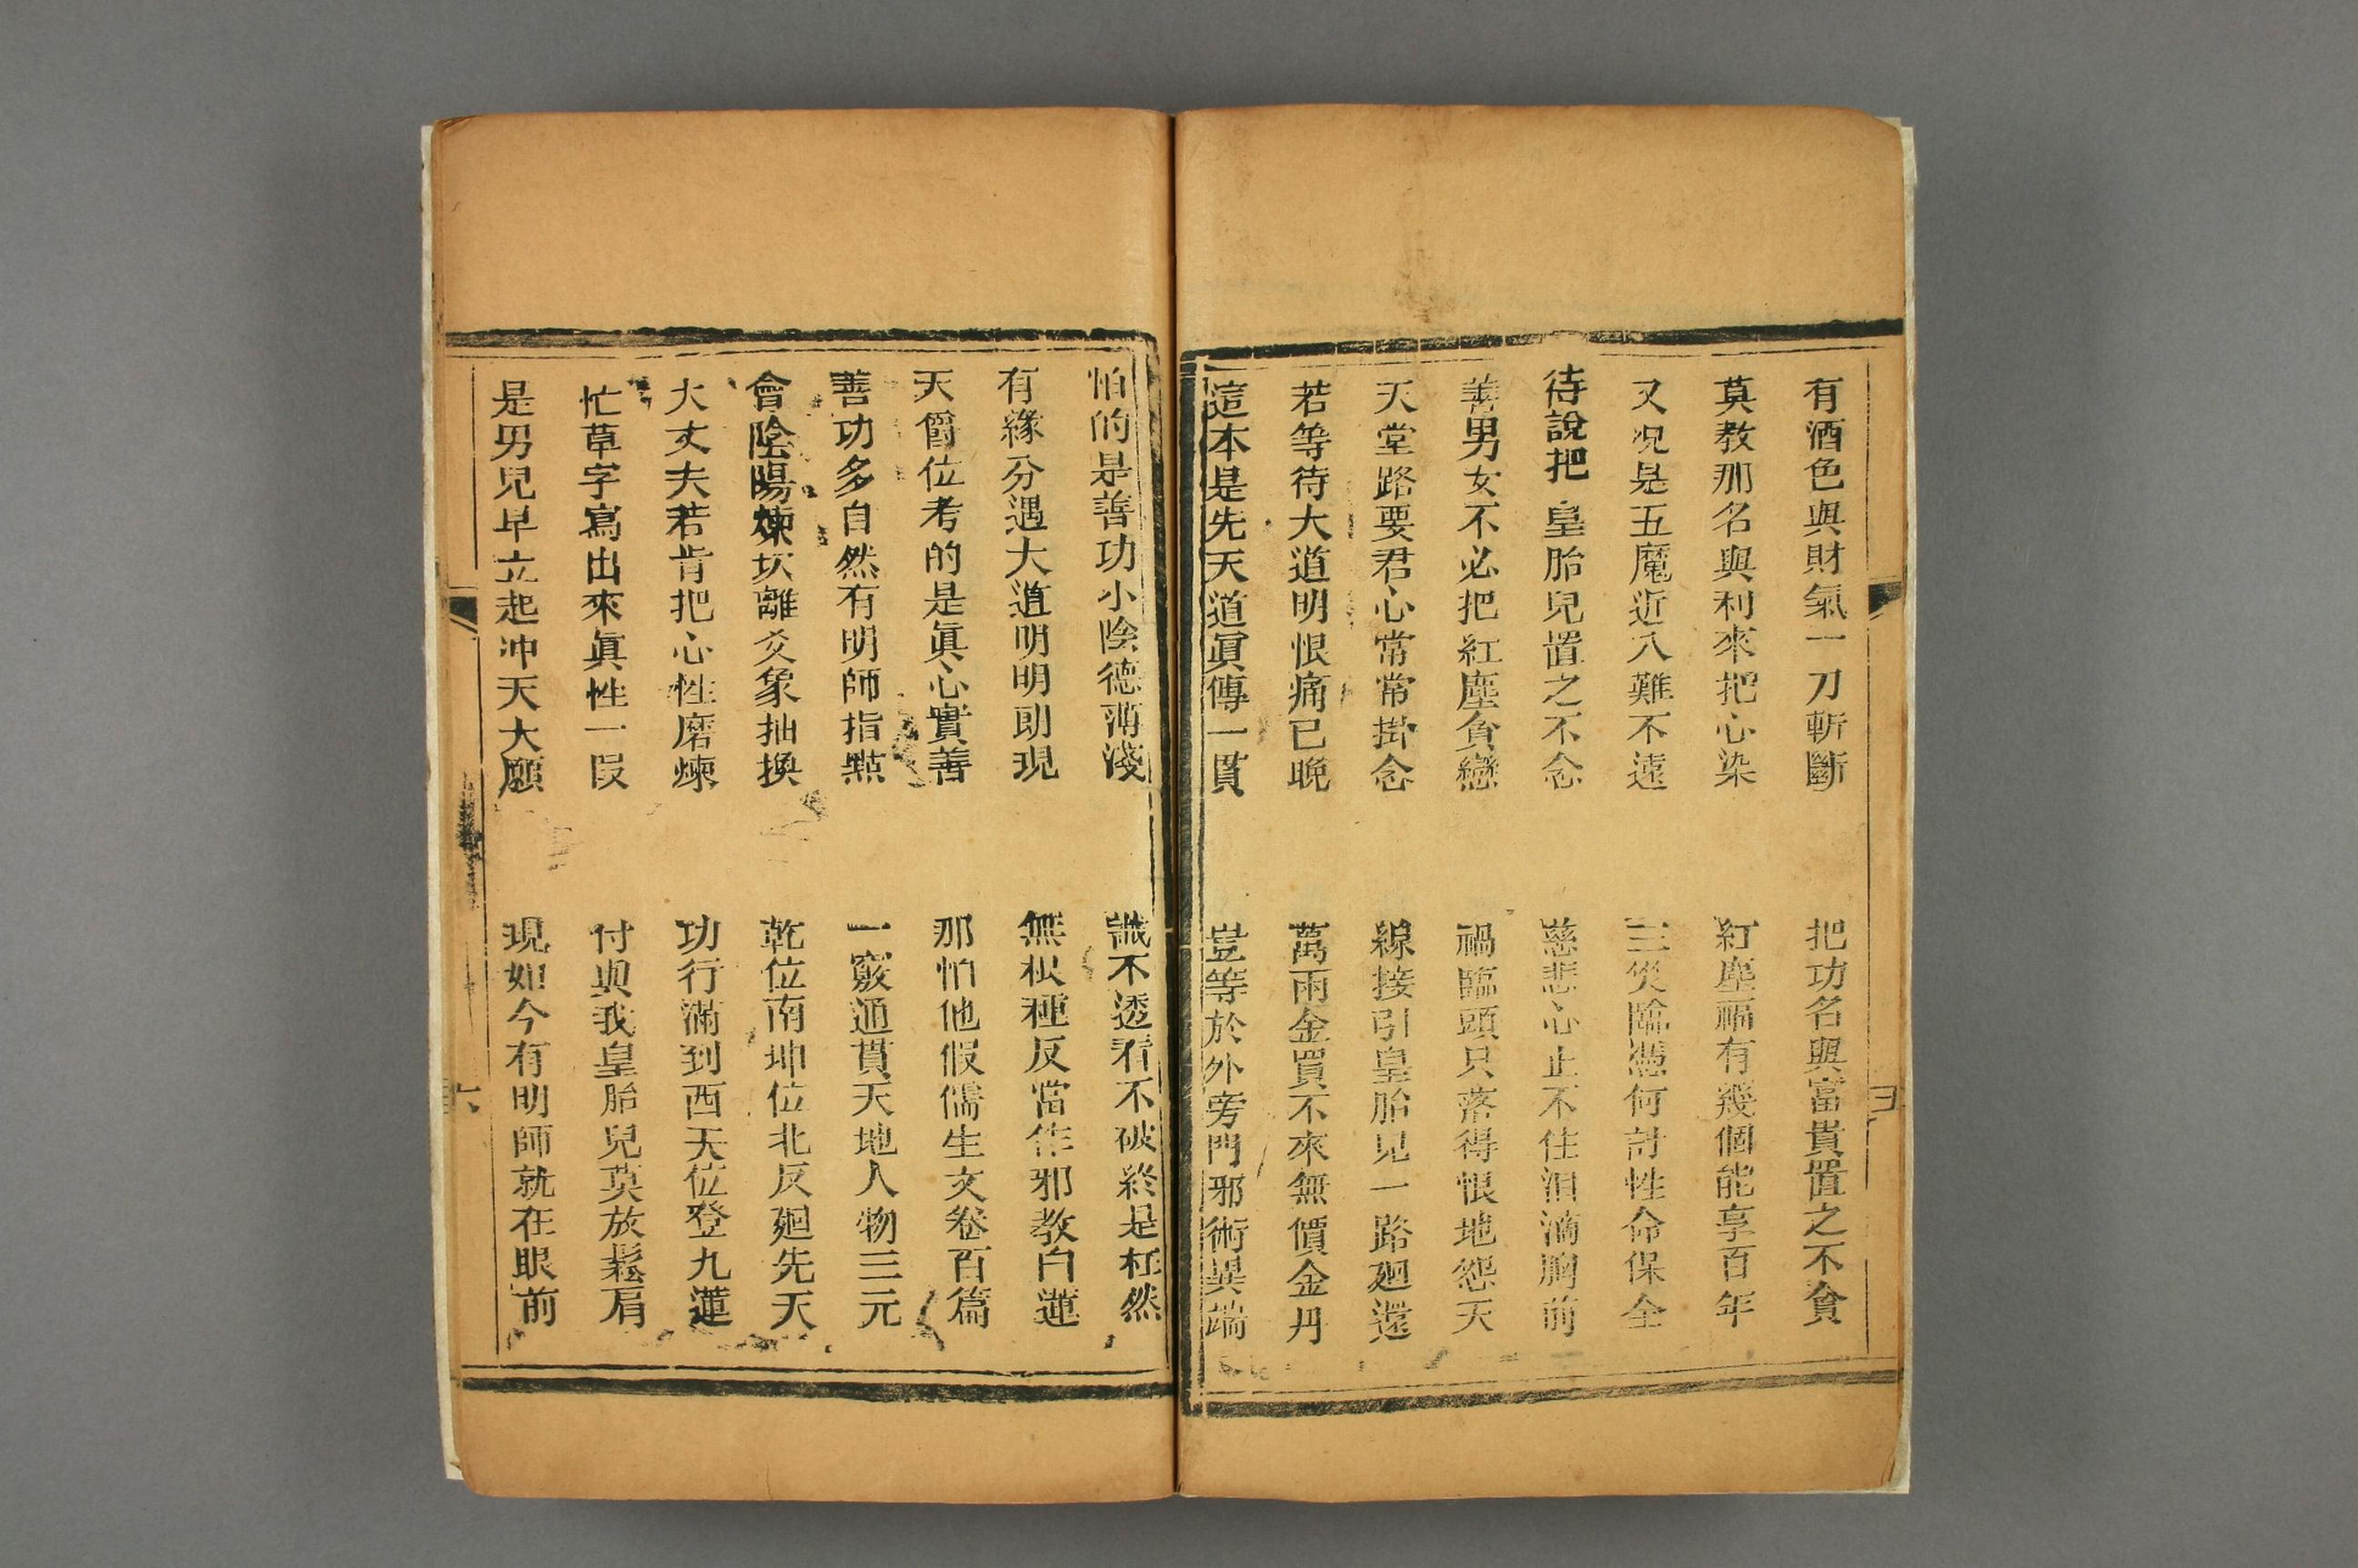 有酒色與財氣一刀斬斷　把功名與富貴置之不貪
莫教那名與利來把心染　紅塵福有幾個能享百年
又况是五魔近八難不遠　三災臨憑何計性命保全
待說把　皇胎兒置之不念　慈悲心止不住泪滴胸前
善男女不必把紅塵貪戀　禍臨頭只落得恨地怨天
天堂路要君心常常掛念　線接引皇胎見一路廻還
若等待大道明恨痛已晚　萬兩金買不來無價金丹
這本是先天道眞傳一貫　豈等於外旁門邪術異端
怕的是善功小陰德薄淺　識不透看不破終是枉然
有緣分遇大道明明朗現　無根種反當作邪教白蓮
天爵位考的是眞心實善　那怕他假儒生文卷百篇
善功多自然有明師指點　一竅通貫天地人物三元
會陰陽煉坎離爻象抽換　乾位南坤位北反廻先天
大丈夫若肯把心性磨煉　功行滿到西天位登九蓮
忙草字寫出來眞性一段　付與我皇胎兒莫放鬆肩
是男兒早立起冲天大願　現如今有明師就在眼前
六